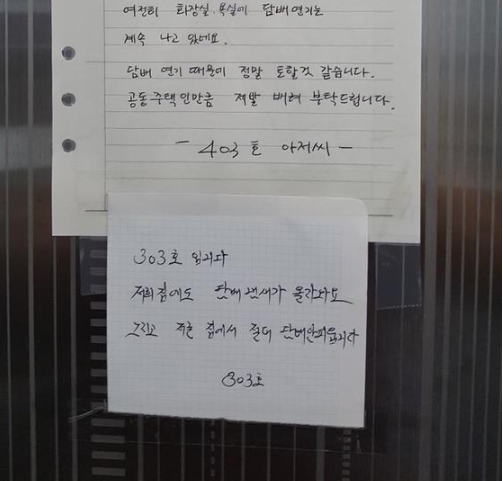 여전히 화장실. 욕실에 담배연기는
계속 나고 있네요.
담배 연기 때문에 정말 토할것 같습니다.
공동주택인만큼 제발 배려 부탁드립니다.
- 403호 아저씨 -
303호 입니다
저희집에도 담배냄새가 올라와요
그리고 저흰 집에서 절대 담배안피웁니다
303호